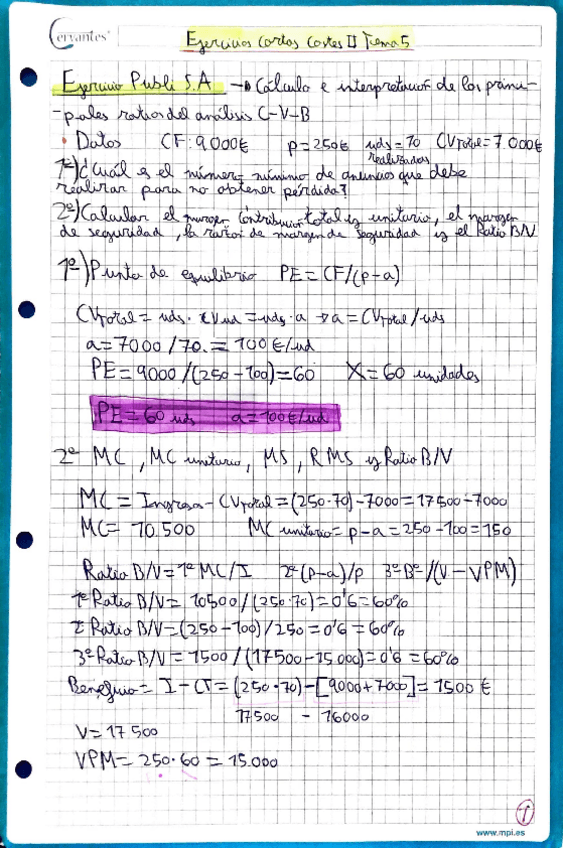 Cervantes
Ejercicios Cortos Costes II Tema 5
Ejercicio Publi S.A → Cálculo e interpretación de los princi-
-pales ratios del análisis C-V-B
• Datos CF: 9000€ p=250€ uds=70 CVTotal=7000€
realizados
1º) ¿Cuál es el número mínimo de anuncios que debe
realizar para no obtener pérdida?
2º) Calcular el margen contribución total y unitario, el margen
de seguridad, la ratio de margen de seguridad y el Ratio B/V
1º) Punto de equilibrio PE=CF/(p-a)
CVTotal = uds · CVud = uds · a → a = CVTotal/uds
a=7000/70.=100€/ud
PE=9000/(250-100)=60 X=60 unidades
PE=60 uds a=100€/ud
2º MC, MC unitario, MS, RMS y Ratio B/V
MC = Ingreso-CVTotal=(250·70)-7000=17500-7000
MC= 10.500 MC unitario= p-a=250-100=150
Ratio B/V=1º MC/I 2º(p-a)/p 3º Bº/(V-VPM)
1º Ratio B/V= 10500/(250·70)=0'6=60%
2º Ratio B/V=(250-100)/250=0'6=60%
3º Ratio B/V=1500/(17500-15.000)=0'6=60%
Beneficio= I-CT=(250·70)-[9000+7000]=1500€
17500 - 16000
V=17500
VPM= 250·60 = 15.000
1
www.mpi.es